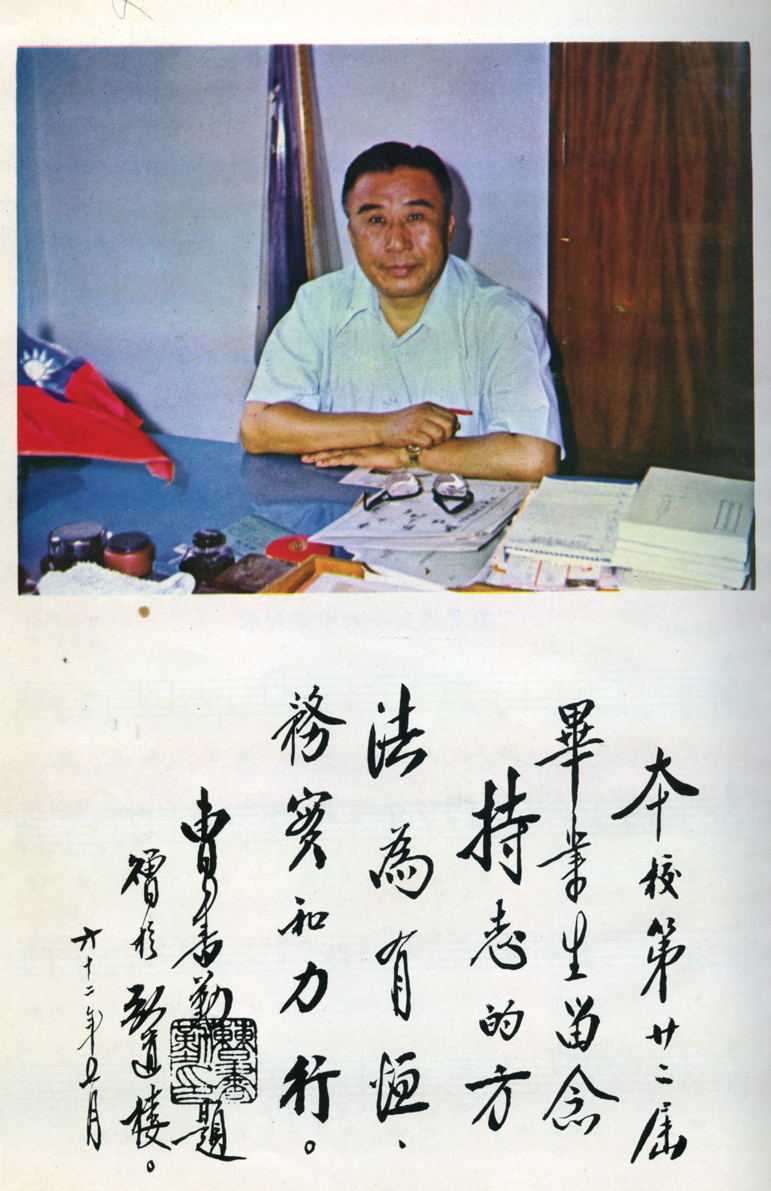 本校第廿二屆
畢業生留念
持志的方
法為有恆、
務實和力行。
曹書勤題
曹書勤印
贈於弘道樓。
六十二年五月